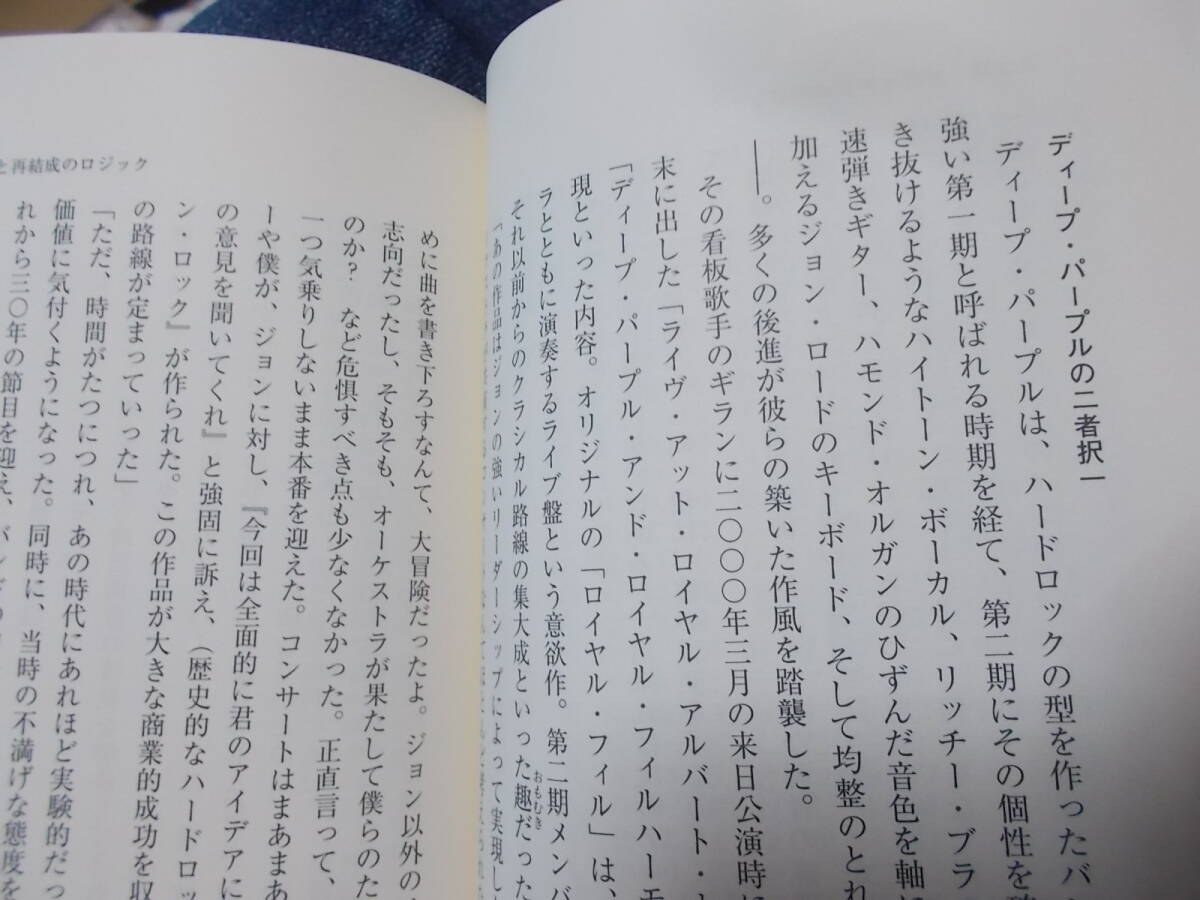 ディープ・パープルの二者択一
ディープ・パープルは、ハードロックの型を作ったバ
強い第一期と呼ばれる時期を経て、第二期にその個性を
き抜けるようなハイトーン・ボーカル、リッチー・ブラ
速弾きギター、ハモンド・オルガンのひずんだ音色を軸に
加えるジョン・ロードのキーボード、そして均整のとれ
――。多くの後進が彼らの築いた作風を踏襲した。
その看板歌手のギランに二〇〇〇年三月の来日公演時に
末に出した「ライヴ・アット・ロイヤル・アルバート・
「ディープ・パープル・アンド・ロイヤル・フィルハーモ
現といった内容。オリジナルの「ロイヤル・フィル」は、
ラとともに演奏するライブ盤という意欲作。第二期メンバ
それ以前からのクラシカル路線の集大成といった趣だった
おもむき
「あの作品はジョンの強いリーダーシップによって実現し
と再結成のロジック
めに曲を書き下ろすなんて、大冒険だったよ。ジョン以外の
志向だったし、そもそも、オーケストラが果たして僕らのた
のか？　など危惧すべき点も少なくなかった。正直言って、
一つ気乗りしないまま本番を迎えた。コンサートはまあまあ
ーや僕が、ジョンに対し、『今回は全面的に君のアイデアに
の意見を聞いてくれ』と強固に訴え、（歴史的なハードロッ
ン・ロック』が作られた。この作品が大きな商業的成功を収
の路線が定まっていった」
「ただ、時間がたつにつれ、あの時代にあれほど実験的だっ
価値に気付くようになった。同時に、当時の不満げな態度を
れから三〇年の節目を迎え、バンドの